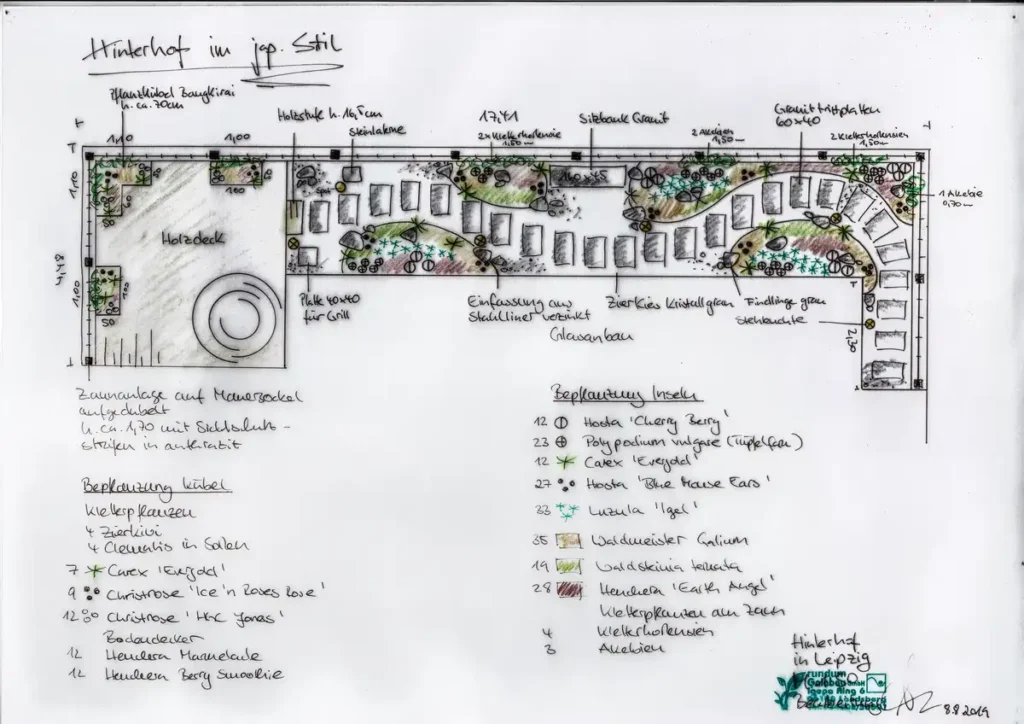 Hinterhof im jap. Stil
Pflanzkübel Bangkirai
h. ca. 70cm
Holzstufe h. 16,5cm
Steinlaterne
17,41
2x Kletterhortensie
1,50m
Sitzbank Granit
2 Akebien
1,50m
Granittrittplatten
60x40
2 Kletterhortensien
1,50m
1,10
1,00
1,10
50
100
140x45
1 Akebie
0,70m
Holzdeck
4,48
1,00
100
50
Platte 40x40
für Grill
Einfassung aus
Stahlliner verzinkt
Glasanbau
Zierkies Kristallgrau
Findlinge grau
Stehleuchte
2,30
Zaunanlage auf Mauersockel
aufgedübelt
h. ca. 1,70 mit Sichtschutz-
streifen in anthrazit
Bepflanzung Kübel
Kletterpflanzen
4 Zierkiwi
4 Clematis in Sorten
7 Carex 'Evergold'
9 Christrose 'Ice'n Roses Rose'
12 Christrose 'HGC Jonas'
Bodendecker
12 Heuchera Marmelade
12 Heuchera Berry Smoothie
Bepflanzung Inseln
12 Hosta 'Cherry Berry'
23 Polypodium vulgare (Tüpfelfarn)
12 Carex 'Evergold'
27 Hosta 'Blue Mouse Ears'
33 Luzula 'Igel'
35 Waldmeister Galium
19 Waldsteinia ternata
28 Heuchera 'Earth Angel'
Kletterpflanzen am Zaun
4 Kletterhortensien
3 Akebien
Hinterhof
in Leipzig
rundum
Galabau GmbH
8.8.2019